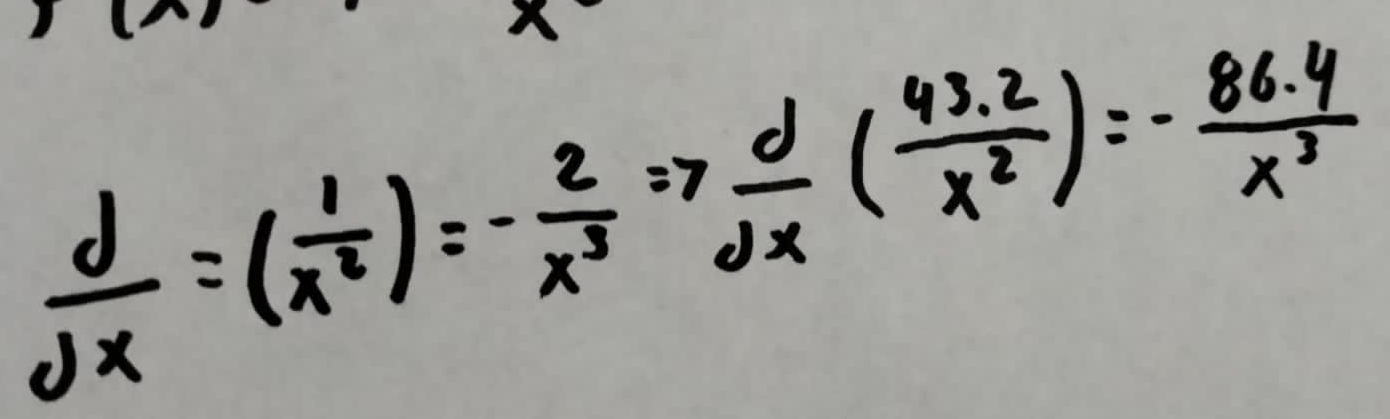 d/dx = (1/x²) = - 2/x³ => d/dx (43.2/x²) = - 86.4/x³